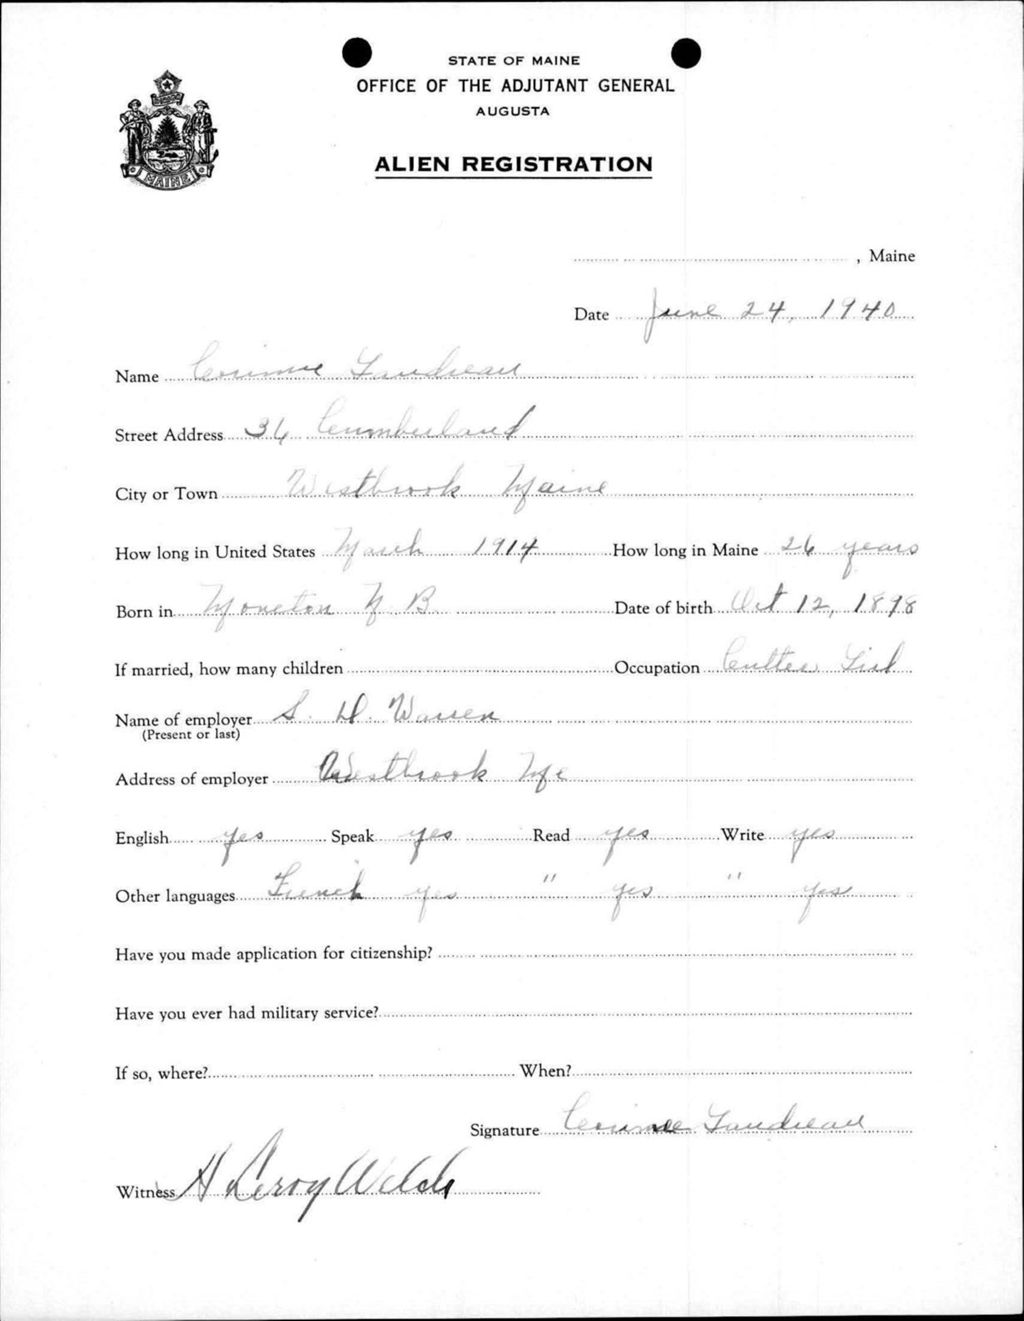 STATE OF MAINE
OFFICE OF THE ADJUTANT GENERAL
AUGUSTA
MAINE
ALIEN REGISTRATION
, Maine
Date June 24, 1940
Name Corinne Gaudreau
Street Address 36 Cumberland
City or Town Westbrook Maine
How long in United States March 1914 How long in Maine 26 years
Born in Moncton N B. Date of birth Oct 12, 1898
If married, how many children Occupation Cutter Girl
Name of employer S. D. Warren
(Present or last)
Address of employer Westbrook Me
English yes Speak yes Read yes Write yes
Other languages French yes " yes " yes
Have you made application for citizenship?
Have you ever had military service?
If so, where? When?
Signature Corinne Gaudreau
Witness H Leroy Welch